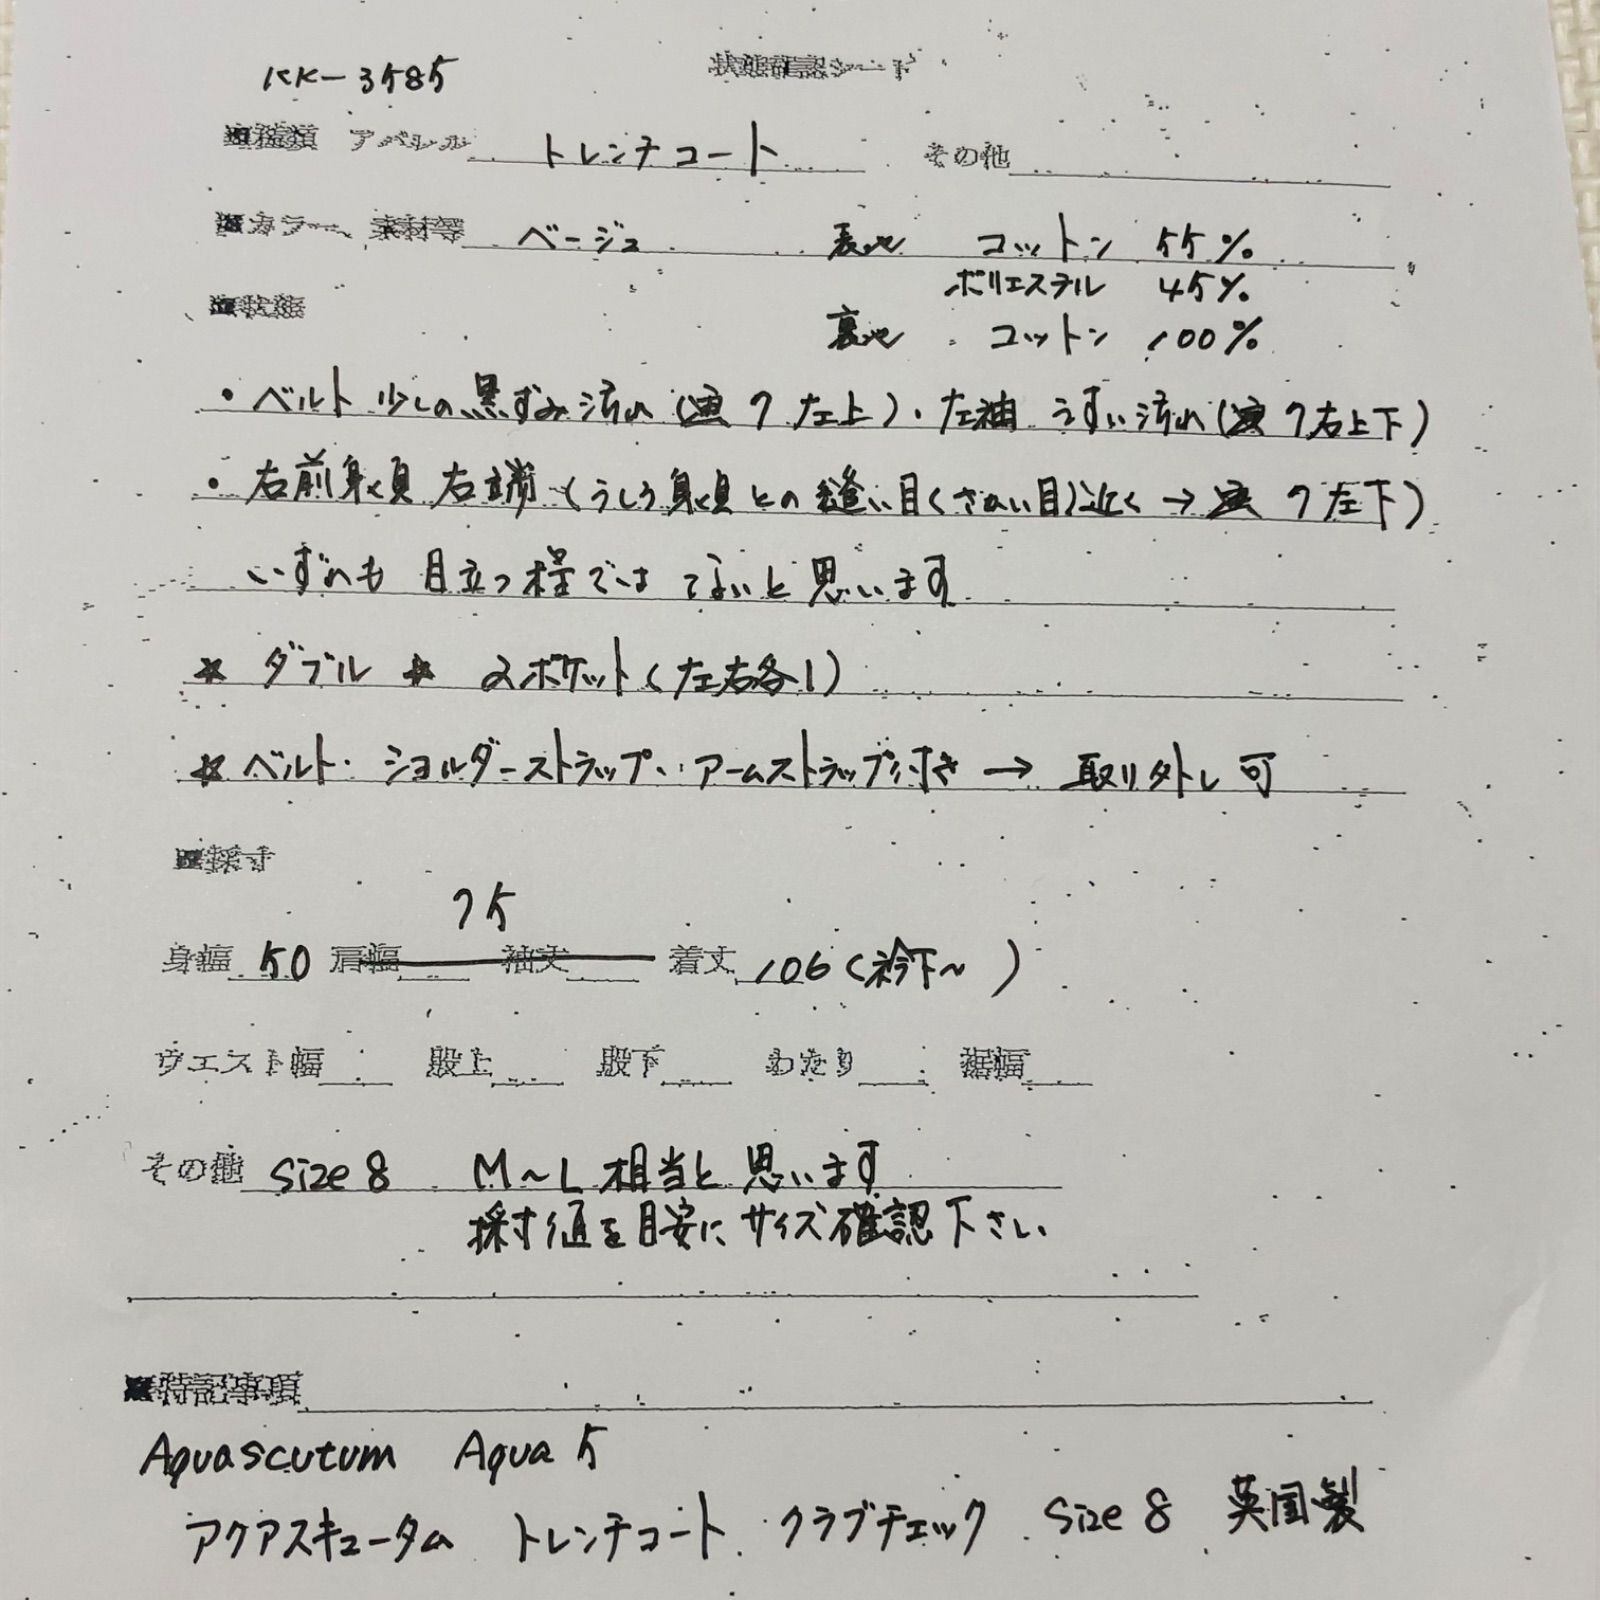 KK-3585 状態確認シート
■種類 アパレル トレンチコート その他
■カラー、素材等 ベージュ 表地 コットン 55%
ポリエステル 45%
■状態 裏地 コットン 100%
・ベルト 少しの黒ずみ汚れ(画7左上)・左袖 うすい汚れ(画7右上下)
・右前身頃 右端(うしろ身頃との縫い目(さかい目)近く→画7左下)
いずれも 目立つ程ではないと思います
☆ダブル ☆2ポケット(左右各1)
☆ベルト・ショルダーストラップ・アームストラップ付き→取り外し可
■採寸
75
身幅 50 肩幅 袖丈 着丈 106(衿下~ )
ウエスト幅 股上 股下 わたり 裾幅
その他 size8 M~L相当と思います
採寸値を目安にサイズ確認下さい
■特記事項
Aquascutum Aqua5
アクアスキュータム トレンチコート クラブチェック size8 英国製